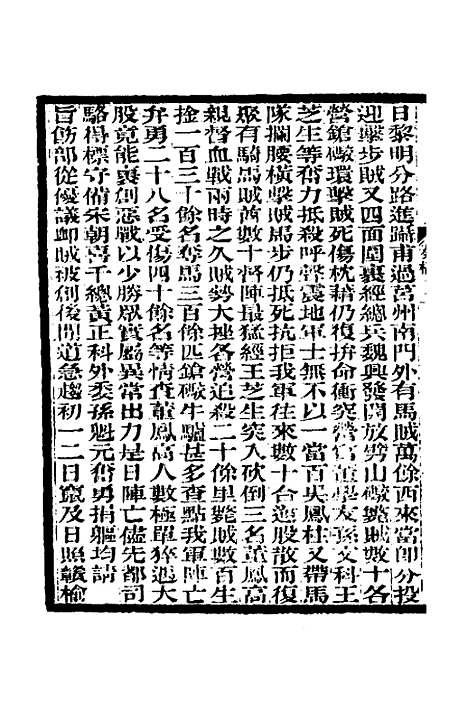 日黎明分路進躡甫過莒州南門外有馬賊萬餘西來當即分投
迎擊步賊又四面圍裹經總兵魏興發開放劈山礮斃賊數十名
營鎗礮環擊賊死傷枕藉仍復拚命衝突營官董學友孫文科王
芝生等奮力抵殺呼聲震地軍士無不以一當百吳鳳柱又帶馬
隊攔腰橫擊賊馬步仍抵死抗拒我軍往來數十合逆股散而復
聚有騎馬賊萬數十督陣最猛經王芝生突入砍倒三名董鳳高
親督血戰兩時之久賊勢大挫各營追殺二十餘里斃賊數百生
捦一百三十餘名奪馬三百餘匹鎗礮牛驢甚多查點我軍陣亡
弁勇二十八名受傷四十餘名等情查董鳳高人數極單猝遇大
股竟能裹創惡戰以少勝眾實屬異常出力是日陣亡儘先都司
駱得標守備宋朝喜千總黃正科外委孫魁元奮勇捐軀均請
旨飭部從優議卹賊被創後間道急趨初一二日竄及日照贛榆